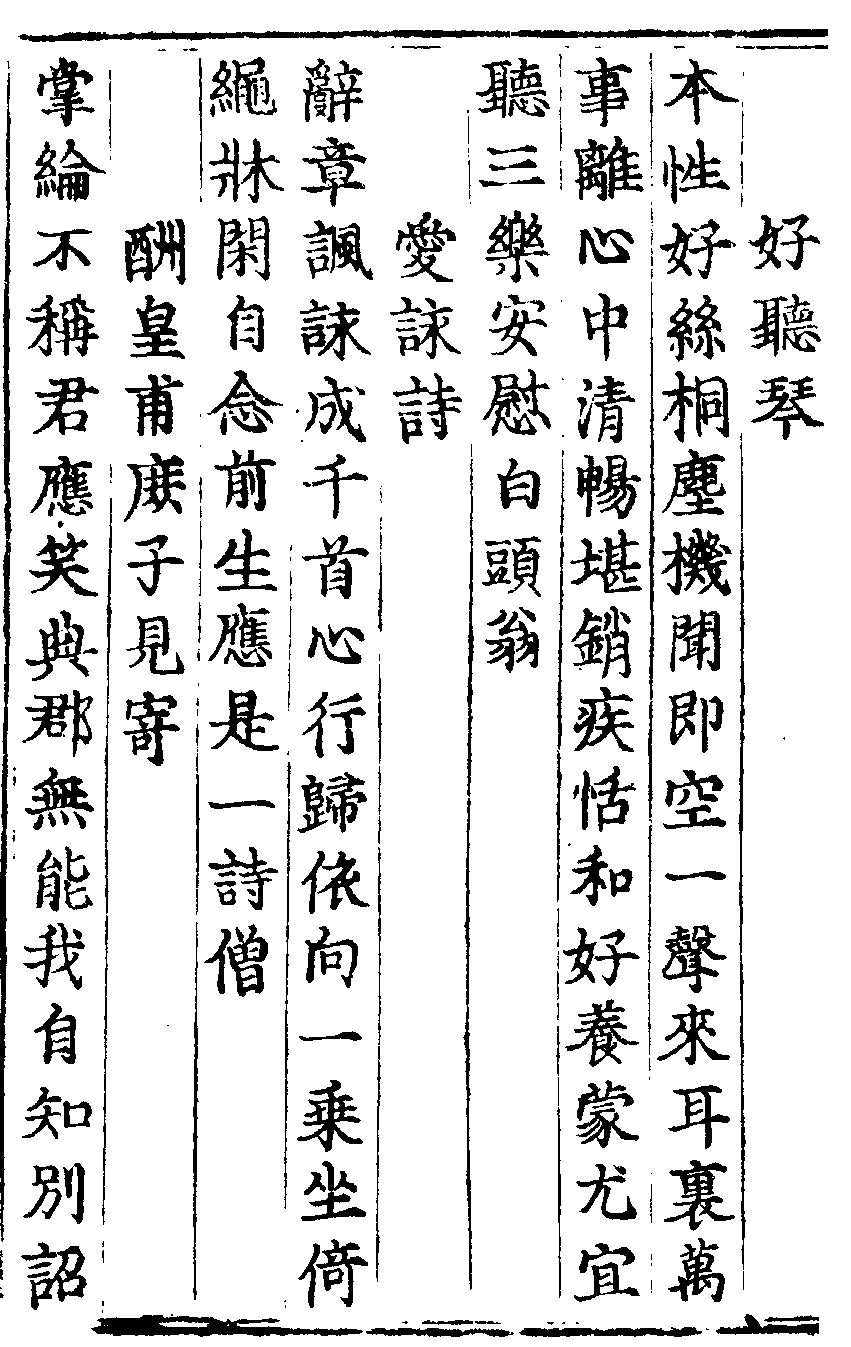 好聽琴
本性好絲桐塵機聞即空一聲來耳裏萬
事離心中清暢堪銷疾恬和好養蒙尤宜
聽三樂安慰白頭翁
愛詠詩
辭章諷詠成千首心行歸依向一乗坐倚
繩牀閑自念前生應是一詩僧
酬皇甫庻子見寄
掌綸不稱君應笑典郡無能我自知別詔